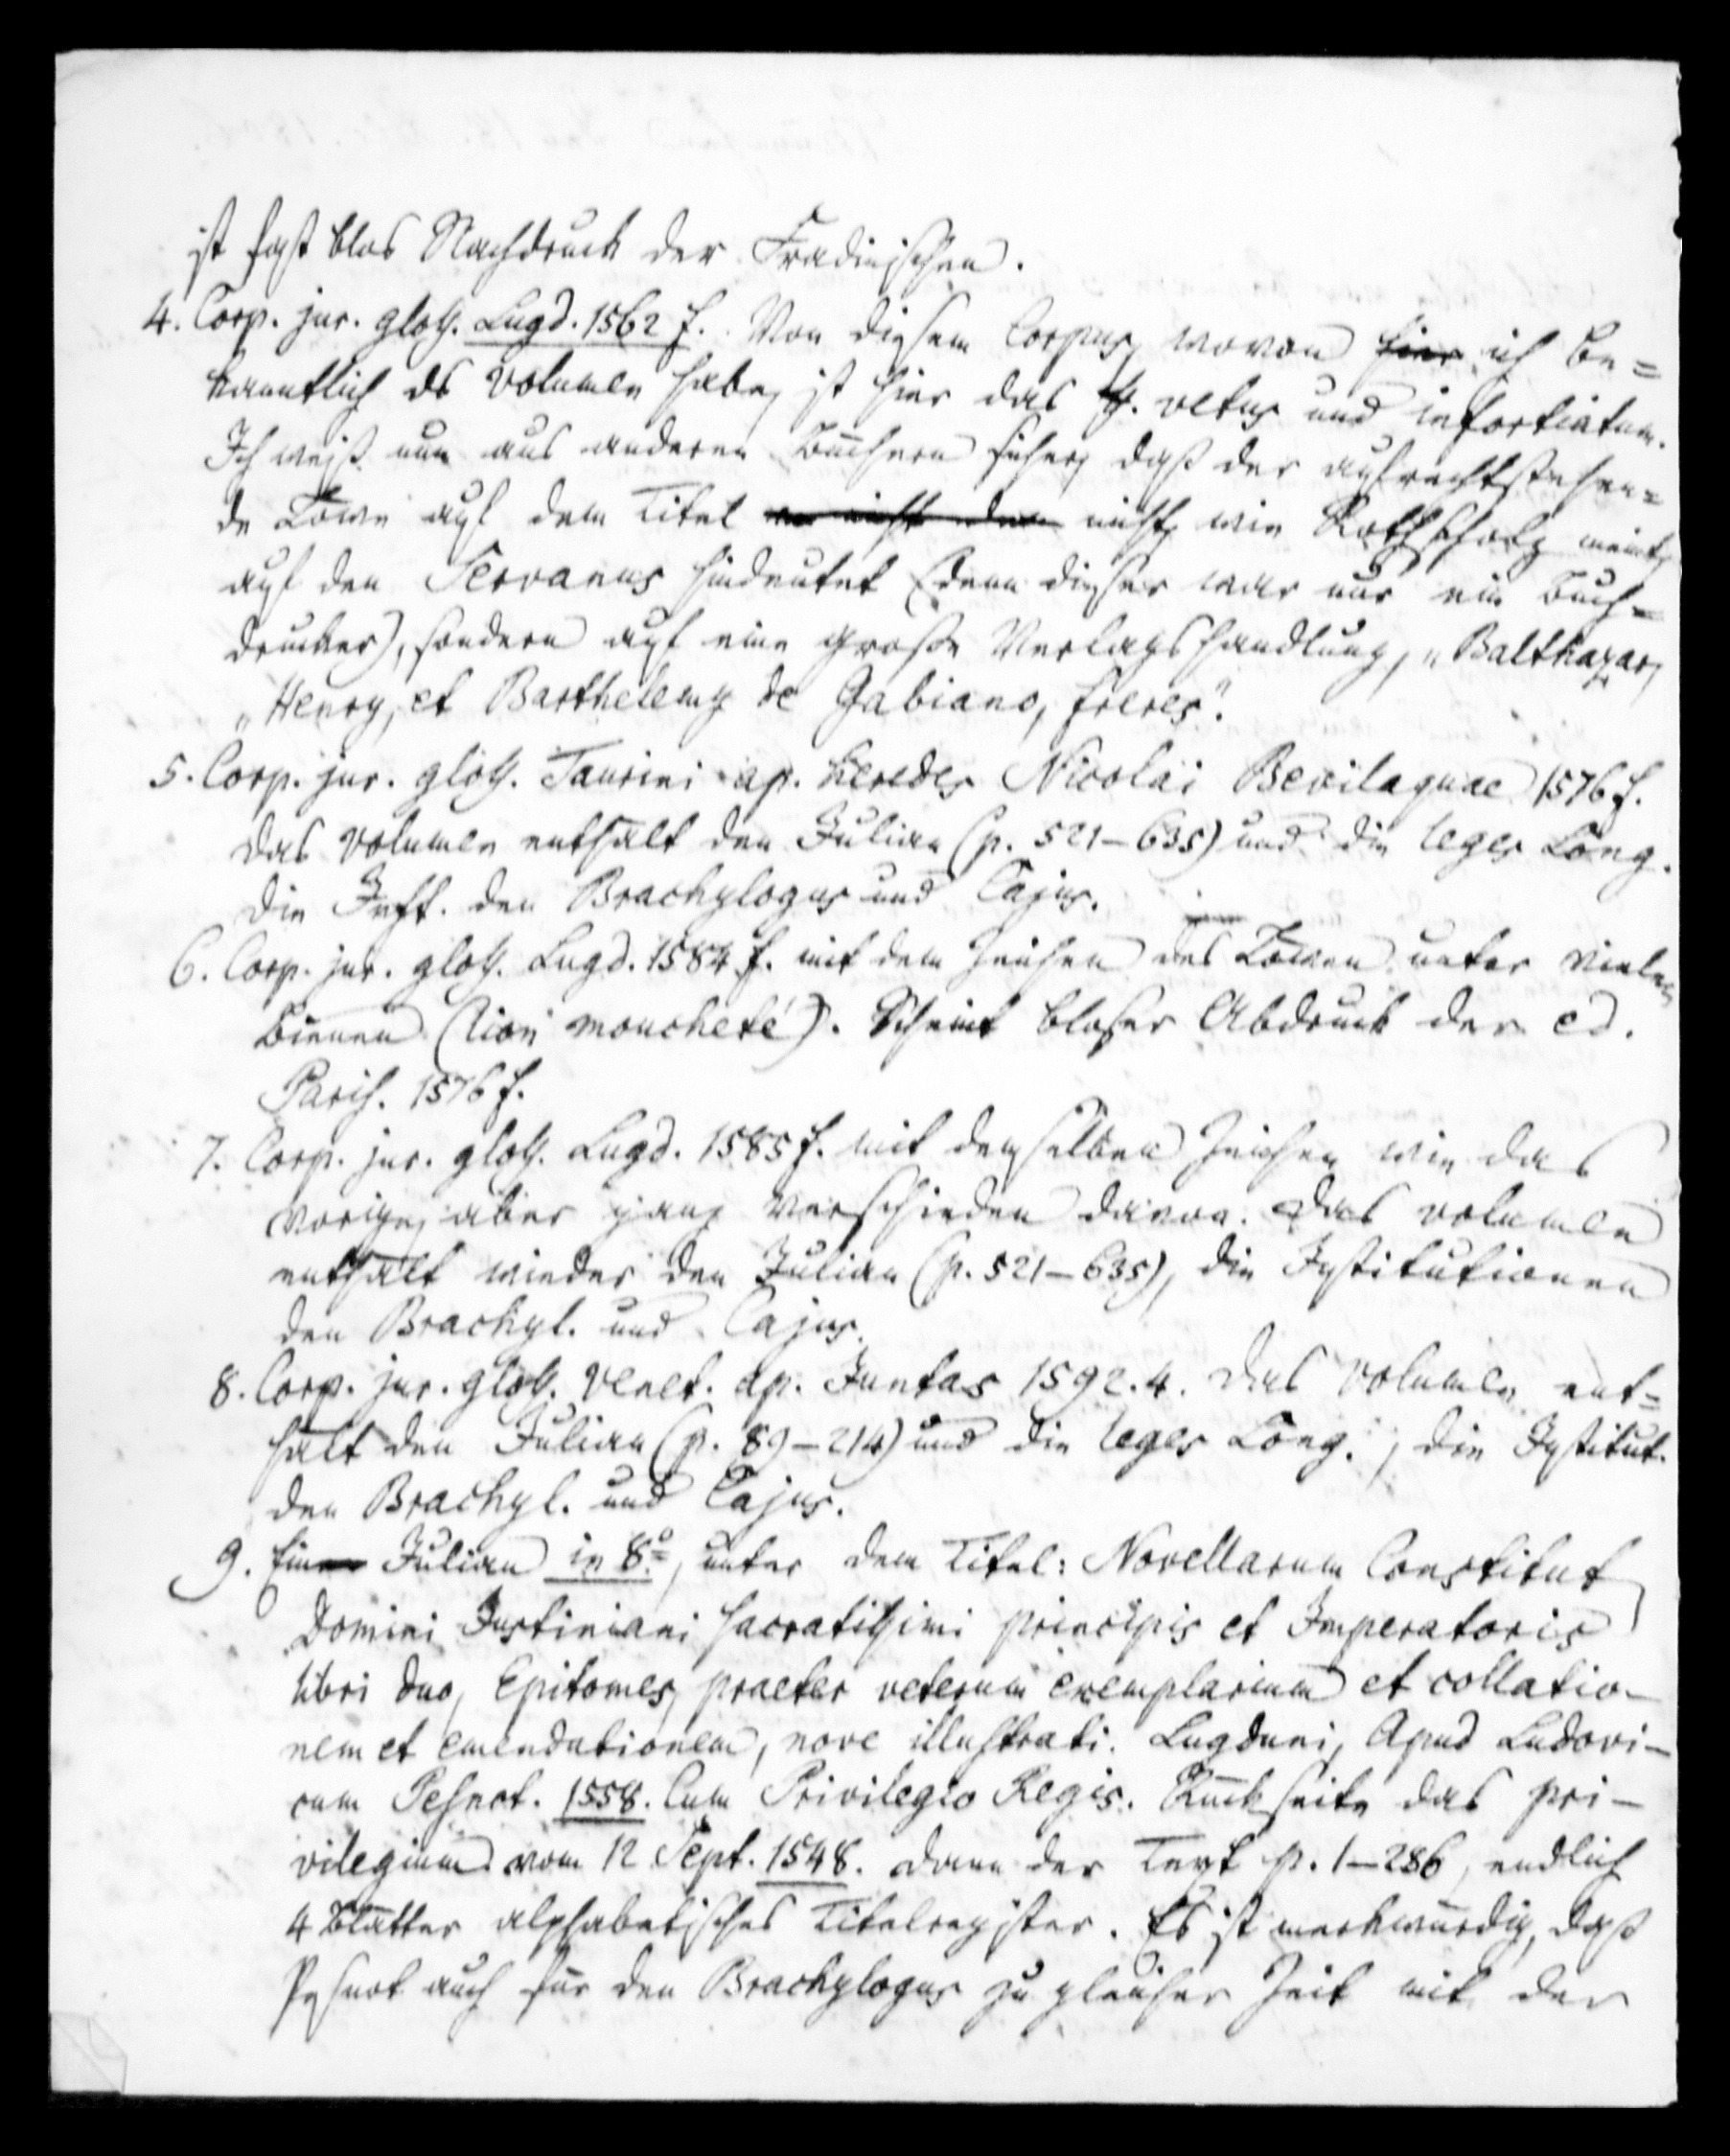 ist fast blos Nachdruck der Fradinischen.
4. Corp. jur. gloss. Lugd. 1562 f. Von diesem Corpus, wovon hier ich be=
kanntlich ds Volumen habe, ist hier das ff. vetus und infortiatum.
Ich weiß nun aus anderen Büchern sicher, daß der aufrechtstehen=
de Löwe auf dem Titel nicht, wie Rothscholz meint,
auf den Servanus hindeutet (denn dieser war nur ein Buch=
drucker), sondern auf eine große Verlagshandlung, „Balthazar,
„Henry, et Barthelemy de Gabiano, freres“.
5. Corp. jur. gloss. Taurini ap. heredes Nicolai Bevilaquae 1576 f.
Das Volumen enthält den Julian (p. 521–635) und die leges Long.
die Instt. den Brachylogus und Cajus.
6. Corp. jur. gloss. Lugd. 1584 f. mit dem Zeichen des Löwen unter vielen
Bienen (lion moucheté). Scheint bloser Abdruck der ed.
Paris. 1576 f.
7. Corp. jur. gloss. Lugd. 1585 f. mit demselben Zeichen wie das
vorige, aber ganz verschieden davon. Das Volumen
enthält wieder den Julian (p. 521–635), die Institutionen
den Brachyl. und Cajus.
8. Corp. jur. gloss. Venet. ap. Juntas 1592. 4. Das Volumen ent=
hält den Julian (p. 89–214) und die leges Long., die Institut.
den Brachyl. und Cajus.
9. Ein Julian in 8º, unter dem Titel: Novellarum Constitut
Domini Justiniani sacratissimi principis et Imperatoris
libri duo, Epitomes, praeter veterum exemplarium et collatio–
nem et emendationem, nove illustrati. Lugduni, Apud Ludovi–
cum Pesnot. 1558. Cum Privilegio Regis. Rückseite das pri–
vilegium vom 12 Sept. 1548. dann der Text p. 1–286, endlich
4 Blätter alphabetisches Titelregister. Es ist merkwürdig, daß
Pesnot auch für den Brachylogus zu gleicher Zeit mit der